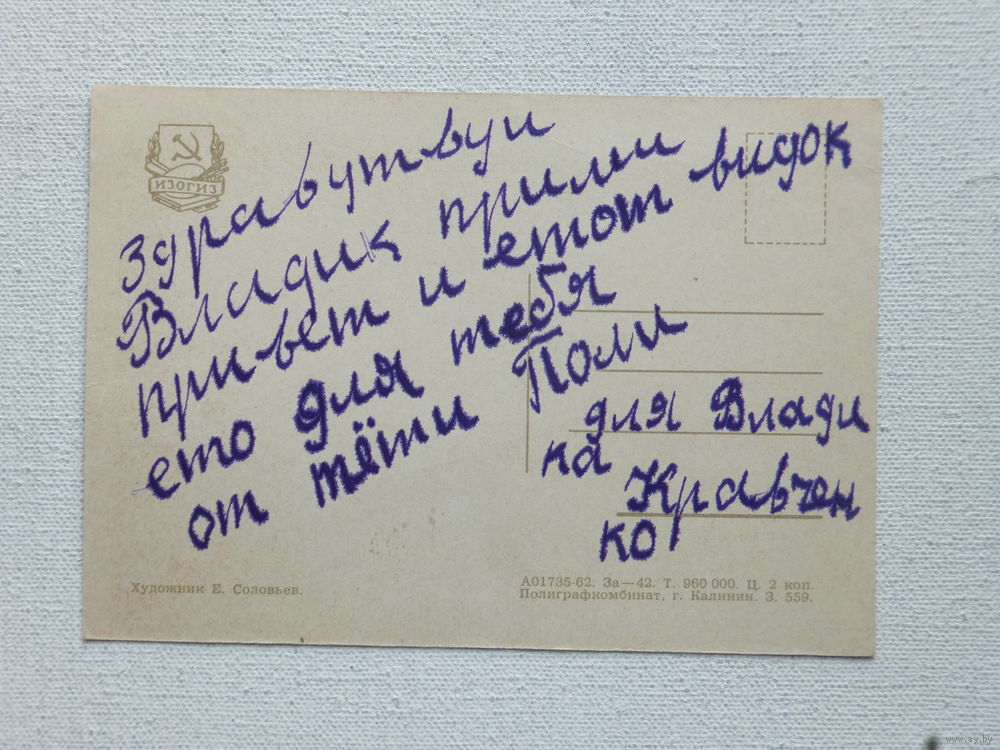 ИЗОГИЗ
здравутвуи
Владик прими
привет и етот видок
ето для тебя
от тёти Поли
для Влади
ка
Кравчен
ко
Художник Е. Соловьев.
А01735-62. За—42. Т. 960 000. Ц. 2 коп.
Полиграфкомбинат, г. Калинин. З. 559.
www.ay.by